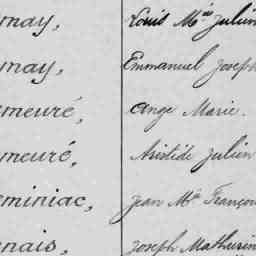 may, Louis Mie Julien
may, Emmanuel Joseph
meuré, Ange Marie.
meuré, Aristide Julien
miniac, Jean Mie François
nais, Joseph Mathurin